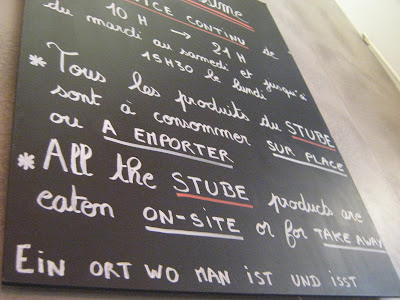 SERVICE CONTINU de
10 H → 21 H
du mardi au samedi et jusqu'à
15H30 le lundi
* Tous les produits du STUBE
sont à consommer SUR PLACE
ou A EMPORTER
* All the STUBE products are
eaten ON-SITE or for TAKE AWAY
EIN ORT WO MAN IST UND ISST